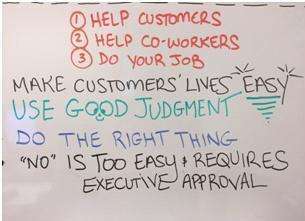 ① HELP CUSTOMERS
② HELP CO-WORKERS
③ DO YOUR JOB
MAKE CUSTOMERS' LIVES EASY
USE GOOD JUDGMENT
DO THE RIGHT THING
• "NO" IS TOO EASY & REQUIRES
EXECUTIVE APPROVAL